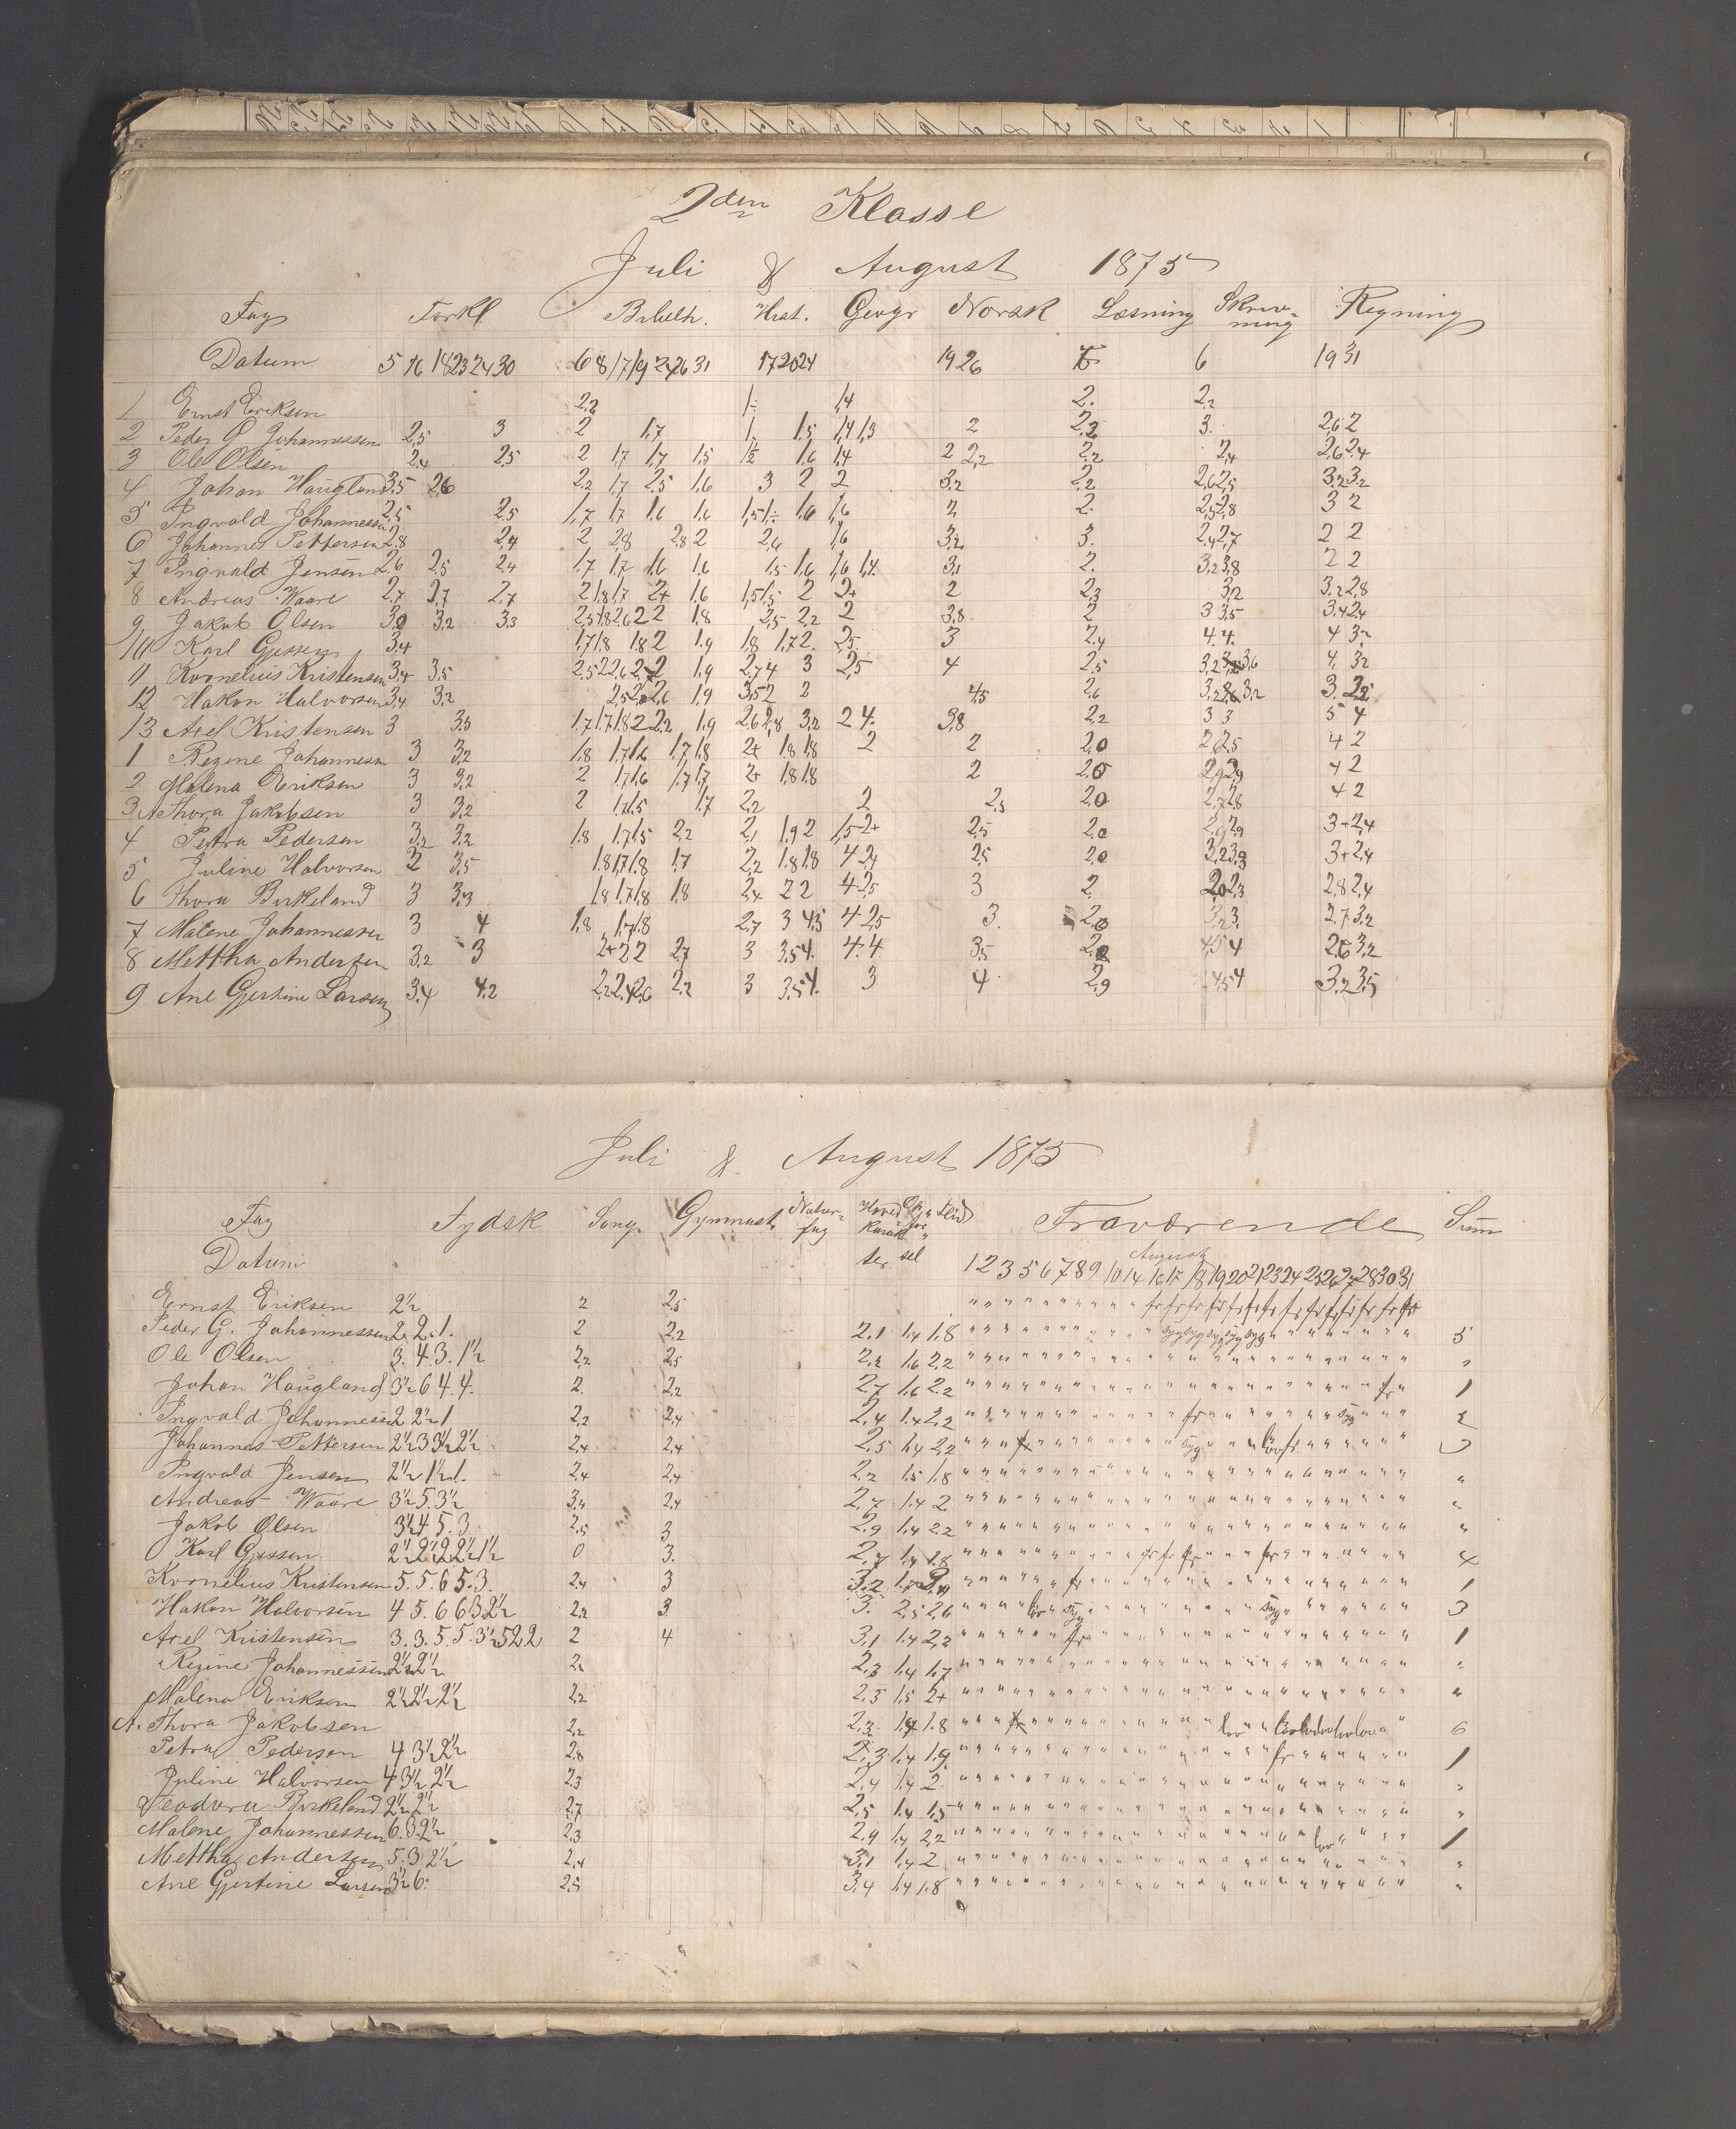 2den Klasse
Juli & August 1875
Fag Forkl Bibelh. Hist. Geogr Norsk Læsning Skriv-ning Regning
Datum 5 16 18 23 24 30 6 8 17 19 24 26 31 17 20 24 19 26 6 19 31
1 Ernst Eriksen 2,2 1÷ 1,4 2. 2,2
2 Peder G Johannessen 2,5 3 2 1,7 1. 1,5 1,4 1,3 2 2,2 3. 2,6 2
3 Ole Olsen 2,4 2,5 2 1,7 1,7 1,5 1½ 1,6 1,4 2 2,2 2,2 2,4 2,6 2,4
4 Johan Haugland 3,5 2,6 2,2 1,7 2,5 1,6 3 2 2 3,2 2,2 2,6 2,5 3,2 3,2
5 Ingvald Johannessen 2,5 2,5 1,7 1,7 1,6 1,6 1,5 1÷ 1,6 1,6 2 2. 2,5 2,8 3 2
6 Johannes Pettersen 2,8 2,4 2 2,8 2,8 2 2,6 1,6 3,2 3. 2,4 2,7 2 2
7 Ingvald Jensen 2,6 2,5 2,4 1,7 1,7 1,6 1,6 1,5 1,6 1,6 1,4 3,1 2. 3,2 3,8 2 2
8 Andreas Waare 2,7 2,7 2,7 2 1,8 1,7 2+ 1,6 1,5 1,5 2 2+ 2 2,3 3,2 3,2 2,8
9 Jakob Olsen 3,0 3,2 3,3 2,5 1,8 2,6 2 2 1,8 2,5 2,2 2 3,8 2 3 3,5 3,4 2,4
10 Karl Gjessen 3,4 1,7 1,8 1,8 2 1,9 1,8 1,7 2. 2,5 3 2,4 4. 4. 4 3,2
11 Kornelius Kristensen 3,4 3,5 2,5 2 2,6 2,2 2 1,9 2,7 4 3 2,5 4 2,5 3,2 3,6 4. 3,2
12 Hakon Halvorsen 3,4 3,2 2,5 2 2,6 1,9 3,5 2 2 4,5 2,6 3,2 3,2 3. 2,2
13 Axel Kristensen 3 3,3 1,7 1,7 1,8 2 2,2 1,9 2,6 2,8 3,2 2 4. 3,8 2,2 3 3 5 4
1 Regine Johannessen 3 3,2 1,8 1,7 1,6 1,7 1,8 2+ 1,8 1,8 2 2 2,0 2,5 4 2
2 Malena Eriksen 3 3,2 2 1,7 1,6 1,7 1,7 2+ 1,8 1,8 2 2,0 2,9 2,9 4 2
3 A Thora Jakobsen 3 3,2 2 1,7 1,5 1,7 2,2 2 2,5 2,0 2,7 2,8 4 2
4 Petra Pedersen 3,2 3,2 1,8 1,7 1,5 2,2 2,1 1,9 2 1,5 2+ 2,5 2,0 2,9 2,9 3+ 2,4
5 Juline Halvorsen 2 3,5 1,8 1,7 1,8 1,7 2,2 1,8 1,8 4 2,4 2,5 2,0 3,2 3,3 3+ 2,4
6 Thora Birkeland 3 3,3 1,8 1,7 1,8 1,8 2,4 2 2 4 2,5 3 2. 2,0 2,3 2,8 2,4
7 Malene Johannessen 3 4 1,8 1,7 1,8 2,7 3 4,5 4 2,5 3. 2,0 3,2 3. 2,7 3,2
8 Mettha Andersen 3,2 3 2+ 2 2 2,7 3 3,5 4. 4. 4. 3,5 2,2 4,5 4 2,6 3,2
9 Ane Gjertine Larsen 3,4 4,2 2,2 2,4 2,6 2,2 3 3,5 4. 3 4 2,9 4,5 4 3,2 3,5
Juli & August 1875
Fag Tydsk Sang Gymnast. Natur-fag Hoved Karak ter Op for sel Flid Fraværende Sum
August
Datum 1 2 3 5 6 7 8 9 10 14 16 17 18 19 20 21 23 24 25 26 27 28 30 31
Ernst Eriksen 2½ 2 2,5 " " " " " " " " " " fr fr fr fr fr fr fr fr fr fr fr fr fr fr
Peder G. Johannessen 2. 2. 1. 2 2,2 2.1 1.4 1.8 " " " " " " " " " " " syg syg syg syg syg " " " " " " " " 5
Ole Olsen 3. 4. 3. 1½ 2,2 2,5 2,2 1.6 2,2 " " " " " " " " " " " " " " " " " " " " " " " " "
Johan Haugland 3½ 6 4. 4. 2. 2,2 2.7 1.6 2,2 " " " " " " " " " " " " " " " " " " " " " " fr " 1
Ingvald Johannessen 2 2½ 1 2,2 2,4 2,4 1.4 2,2 " " " " " " " " " " " " fr " " " " " " " syg " " " 2
Johannes Pettersen 2½ 3 3½ 2½ 2,4 2,4 2,5 1,4 2,2 " " " fr " " " " " " " " syg " " " lov fr " " " " " "
Ingvald Jensen 2½ 1½ 1. 2,4 2,4 2,2 1.5 1.8 " " " " " " " " " " " " " " " " " " " " " " " " "
Andreas Waare 3½ 5. 3½ 3,4 2,4 2,7 1.4 2 " " " " " " " " " " " " " " " " " " " " " " " " "
Jakob Olsen 3½ 4 5. 3. 2,5 3 2,9 1.4 2,2 " " " " " " " " " " " " " " " " " " " " " " " " "
Karl Gjessen 2½ 2½ 2 2½ 1½ 0 3. 2,7 1.4 1.8 " " " " " " " " " " fr fr fr " " " fr " " " " " " " 4
Kornelius Kristensen 5. 5. 6 5. 3. 2,4 3 3,2 1.7 " " " " " " fr " " " " " " " " " " " " " " " " " 1
Hakon Halvorsen 4 5. 6 6 3 2½ 2,2 3. 3. 2,5 2,6 " " " " lov " syg " " " " " " " " " syg " " " " " " " 3
Axel Kristensen 3. 3. 5. 5. 3½ 5 2 2 2 4 3,1 1.4 2,2 " " " " " " fr " " " " " " " " " " " " " " " " " 1
Regine Johannessen 2½ 2½ 2,2 2,3 1,4 1,7 " " " " " " " " " " " " " " " " " " " " " " " " "
Malena Eriksen 2½ 2½ 2½ 2,2 2.3 1,5 2+ " " " " " " " " " " " " " " " " " " " " " " " " "
A. Thora Jakobsen 2,2 2,3. 1,4 1.8 " " " fr " " " " " " " " " " lov " lov lov lov lov " " 6
Petra Pedersen 4 3½ 2½ 2,8 2,3 1.4 1.9 " " " " " " " " " " " " " " " " " fr " " " " " " 1
Juline Halvorsen 4 3½ 2½ 2,3 2,4 1.4 2. " " " " " " " " " " " " " " " " " " " " " " " " "
Teodora Birkeland 2½ 2½ 2,7 2,5 1.4 1,5 " " " " " " " " " " " " " " " " " " " " " " " " "
Malene Johannessen 6. 3. 2½ 2,3 2.9 1.4 2,2 " " " " " " " " " " " " " " " " " " " lov " " " " 1
Mettha Andersen 5. 3. 2½ 2,4 3,1 1.4 2 " " " " " " " " " " " " " " " " " " " " " " " " "
Ane Gjertine Larsen 3½ 6. 2,5 3,4 1.4 1.8 " " " " " " " " " " " " " " " " " " " " " " " " "